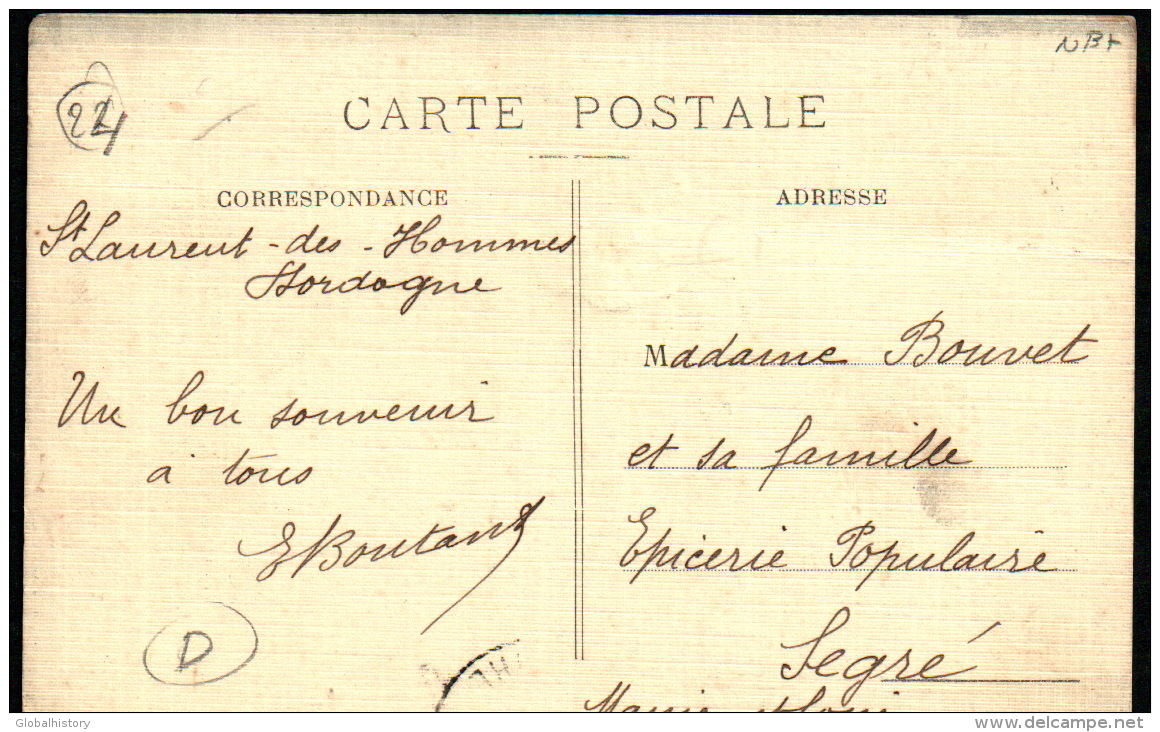 NB+
22
CARTE POSTALE
CORRESPONDANCE
St Laurent-des-Hommes
Dordogne
Un bon souvenir
à tous
E Boutant
D
ADRESSE
Madame Bouvet
et sa famille
Epicerie Populaire
Segré
Globalhistory
www.delcampe.net